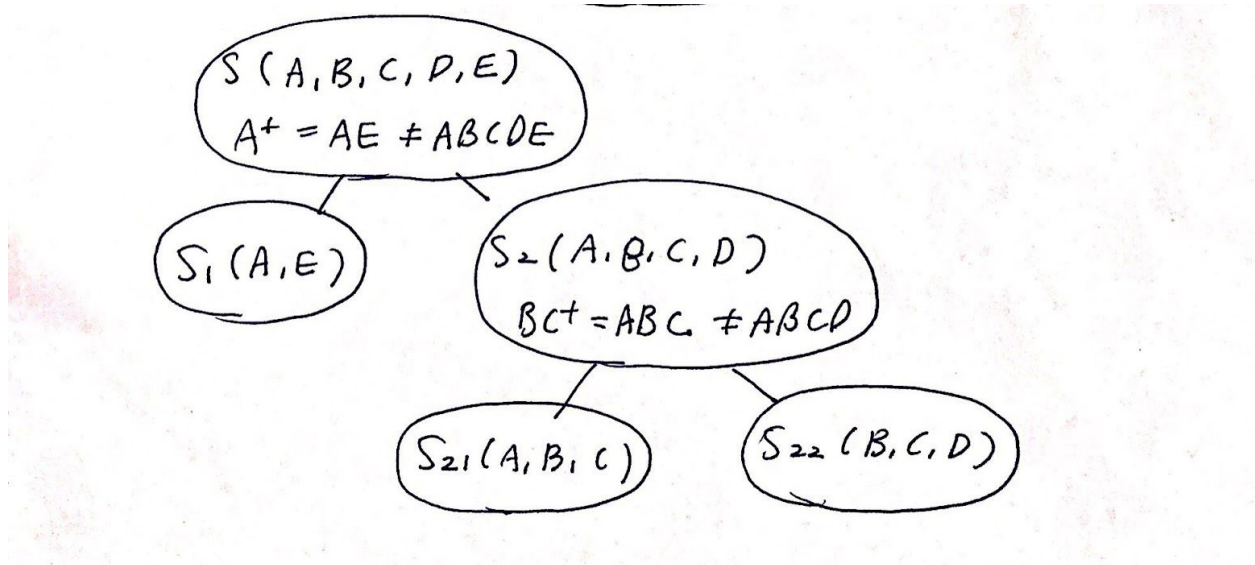 S(A,B,C,D,E)
A⁺ = AE ≠ ABCDE
S₁(A,E)
S₂(A,B,C,D)
BC⁺ = ABC ≠ ABCD
S₂₁(A,B,C)
S₂₂(B,C,D)